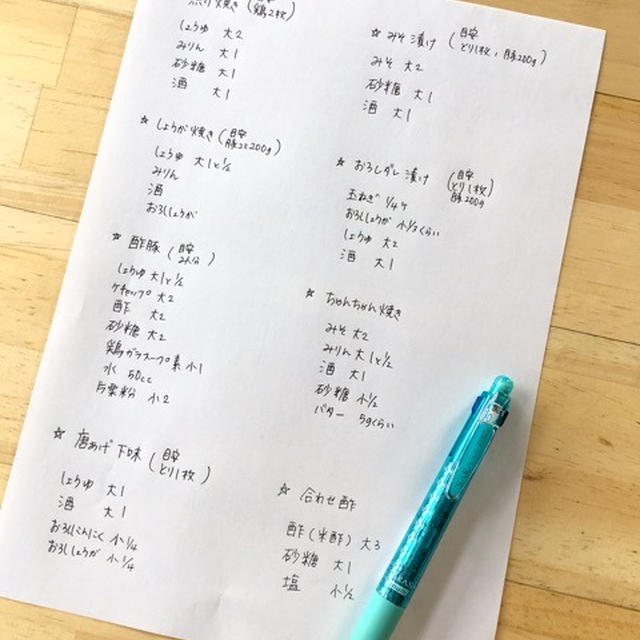 照り焼き (目安 鶏2枚)
しょうゆ 大2
みりん 大1
砂糖 大1
酒 大1
☆ しょうが焼き (目安 豚コマ200g)
しょうゆ 大1と1/2
みりん
酒
おろししょうが
☆ 酢豚 (目安 2人分)
しょうゆ 大1と1/2
ケチャップ 大2
酢 大2
砂糖 大2
鶏ガラスープ素 小1
水 50cc
片栗粉 小2
☆ 唐あげ下味 (目安 とり1枚)
しょうゆ 大1
酒 大1
おろしにんにく 小1/4
おろししょうが 小1/4
☆ みそ漬け (目安 とり1枚、豚200g)
みそ 大2
砂糖 大1
酒 大1
☆ おろしダレ漬け (目安 とり1枚 豚200g)
玉ねぎ 1/4ケ
おろししょうが 小1/2くらい
しょうゆ 大2
酒 大1
☆ ちゃんちゃん焼き
みそ 大2
みりん 大1と1/2
酒 大1
砂糖 小1/2
バター 5gくらい
☆ 合わせ酢
酢(米酢) 大3
砂糖 大1
塩 小1/2